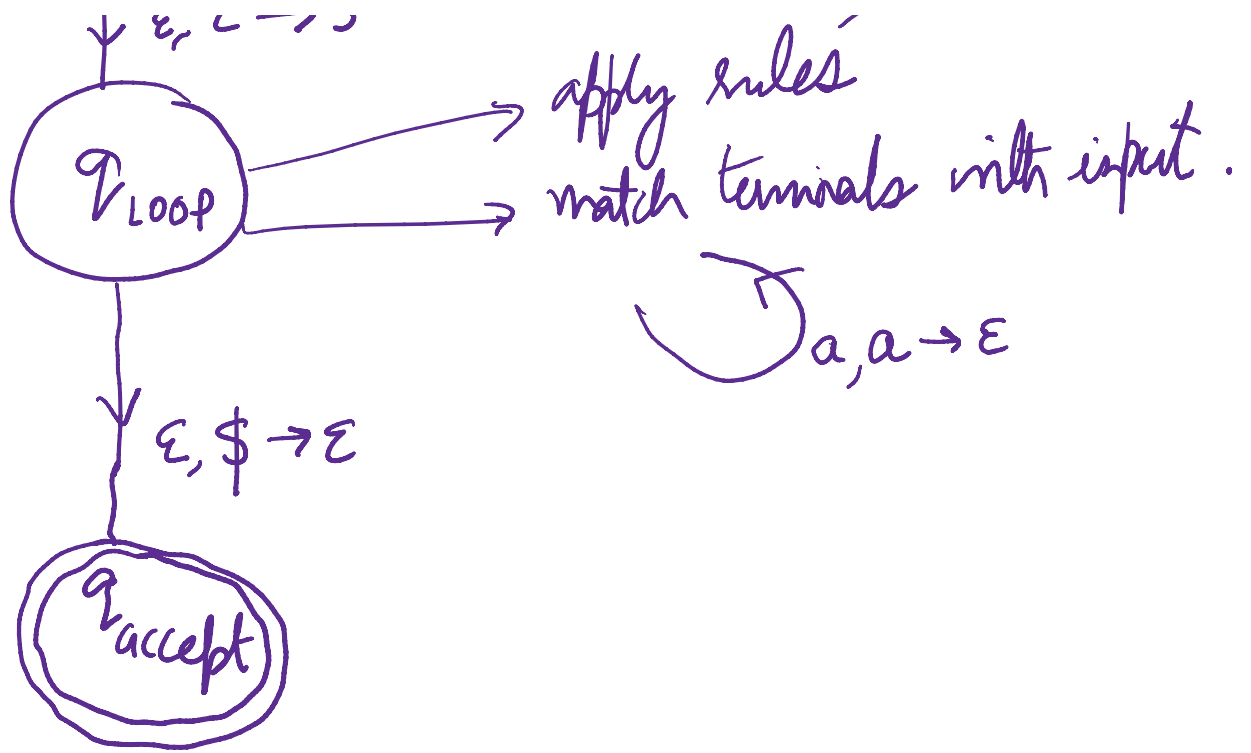 apply rules
q LOOP
match terminals with input.
a, a → ε
ε, $ → ε
q accept